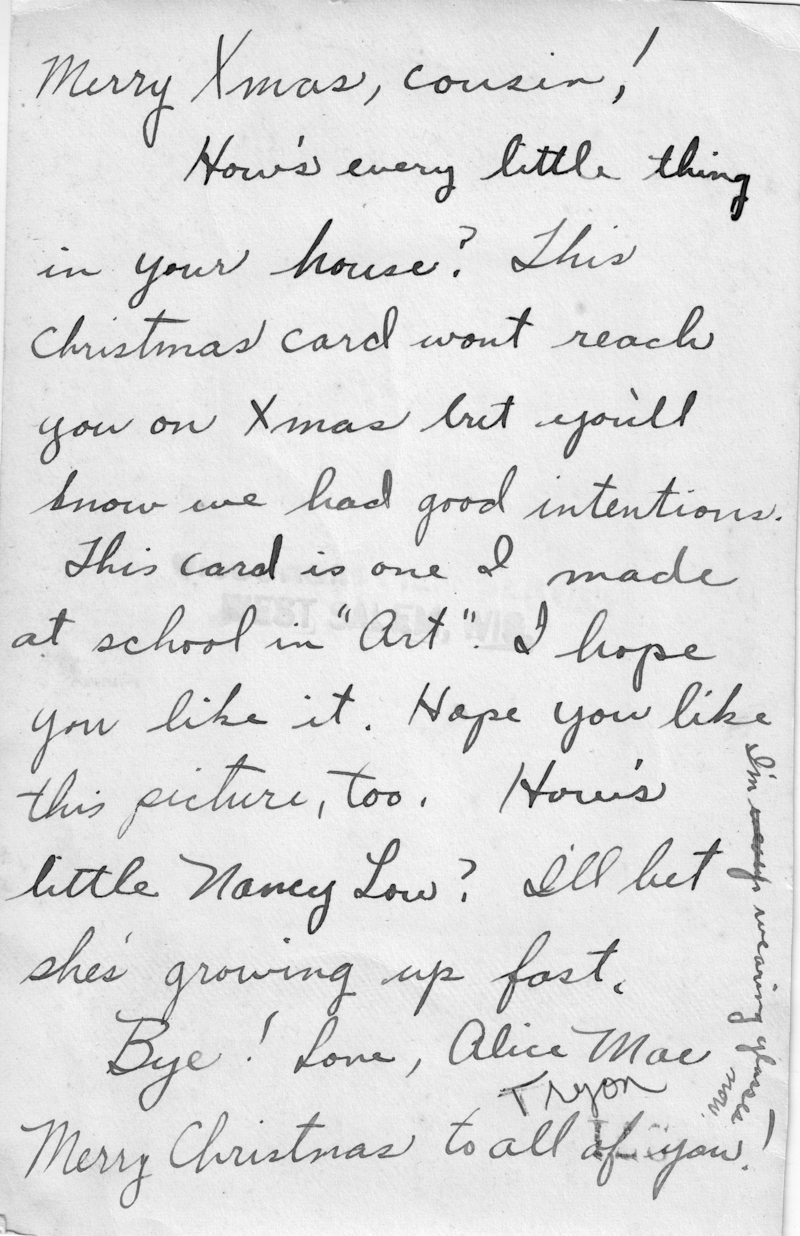 Merry Xmas, cousin!
How's every little thing
in your house? This
Christmas card wont reach
you on Xmas but you'll
know we had good intentions.
This card is one I made
at school in "Art". I hope
you like it. Hope you like
this picture, too. How's
little Nancy Lou? I'll bet
she's growing up fast.
Bye! Love, Alice Mae
Tryon
Merry Christmas to all of you!
I'm wearing glasses
now.
WEST SALEM, WIS